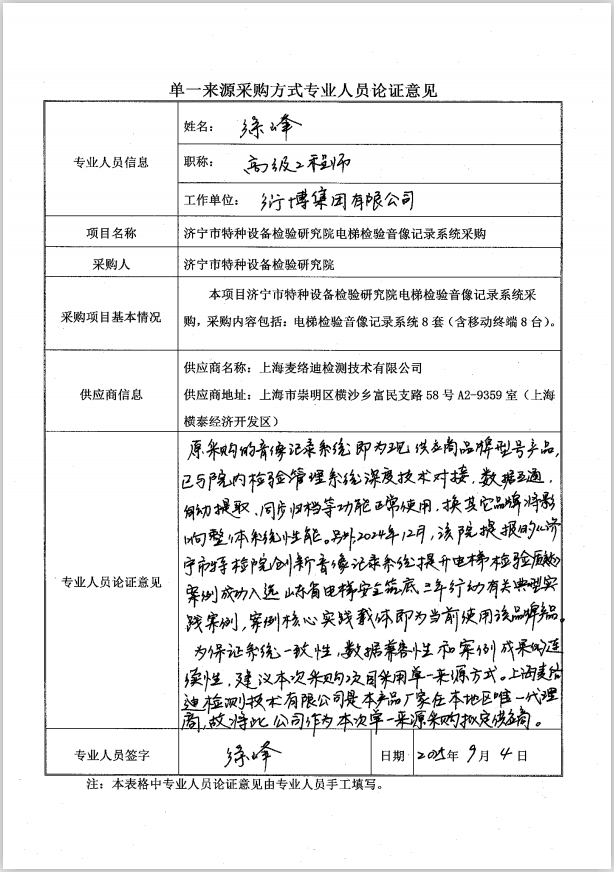 单一来源采购方式专业人员论证意见
专业人员信息
姓名： 徐峰
职称： 高级工程师
工作单位： 衍博集团有限公司
项目名称 济宁市特种设备检验研究院电梯检验音像记录系统采购
采购人 济宁市特种设备检验研究院
采购项目基本情况
本项目济宁市特种设备检验研究院电梯检验音像记录系统采
购，采购内容包括：电梯检验音像记录系统 8 套（含移动终端 8 台）。
供应商信息
供应商名称：上海麦络迪检测技术有限公司
供应商地址：上海市崇明区横沙乡富民支路 58 号 A2-9359 室（上海
横泰经济开发区）
专业人员论证意见
原采购的音像记录系统即为现供应商品牌型号产品，
已与院内检验管理系统深度技术对接，数据互通，
自动提取、同步归档等功能正常使用，换其它品牌将影
响整体系统性能。另外2024年12月，该院提报的《济
宁市特检院创新音像记录系统提升电梯检验质效》
案例成功入选山东省电梯安全筑底三年行动有关典型实
践案例，案例核心实践载体即为当前使用该品牌产品。
为保证系统一致性，数据兼容性和案例成果的连
续性，建议本次采购项目采用单一来源方式。上海麦络
迪检测技术有限公司是本产品厂家在本地区唯一代理
商，故将此公司作为本次单一来源采购拟定供应商。
专业人员签字 徐峰 日期 2025年 9月 4日
注：本表格中专业人员论证意见由专业人员手工填写。